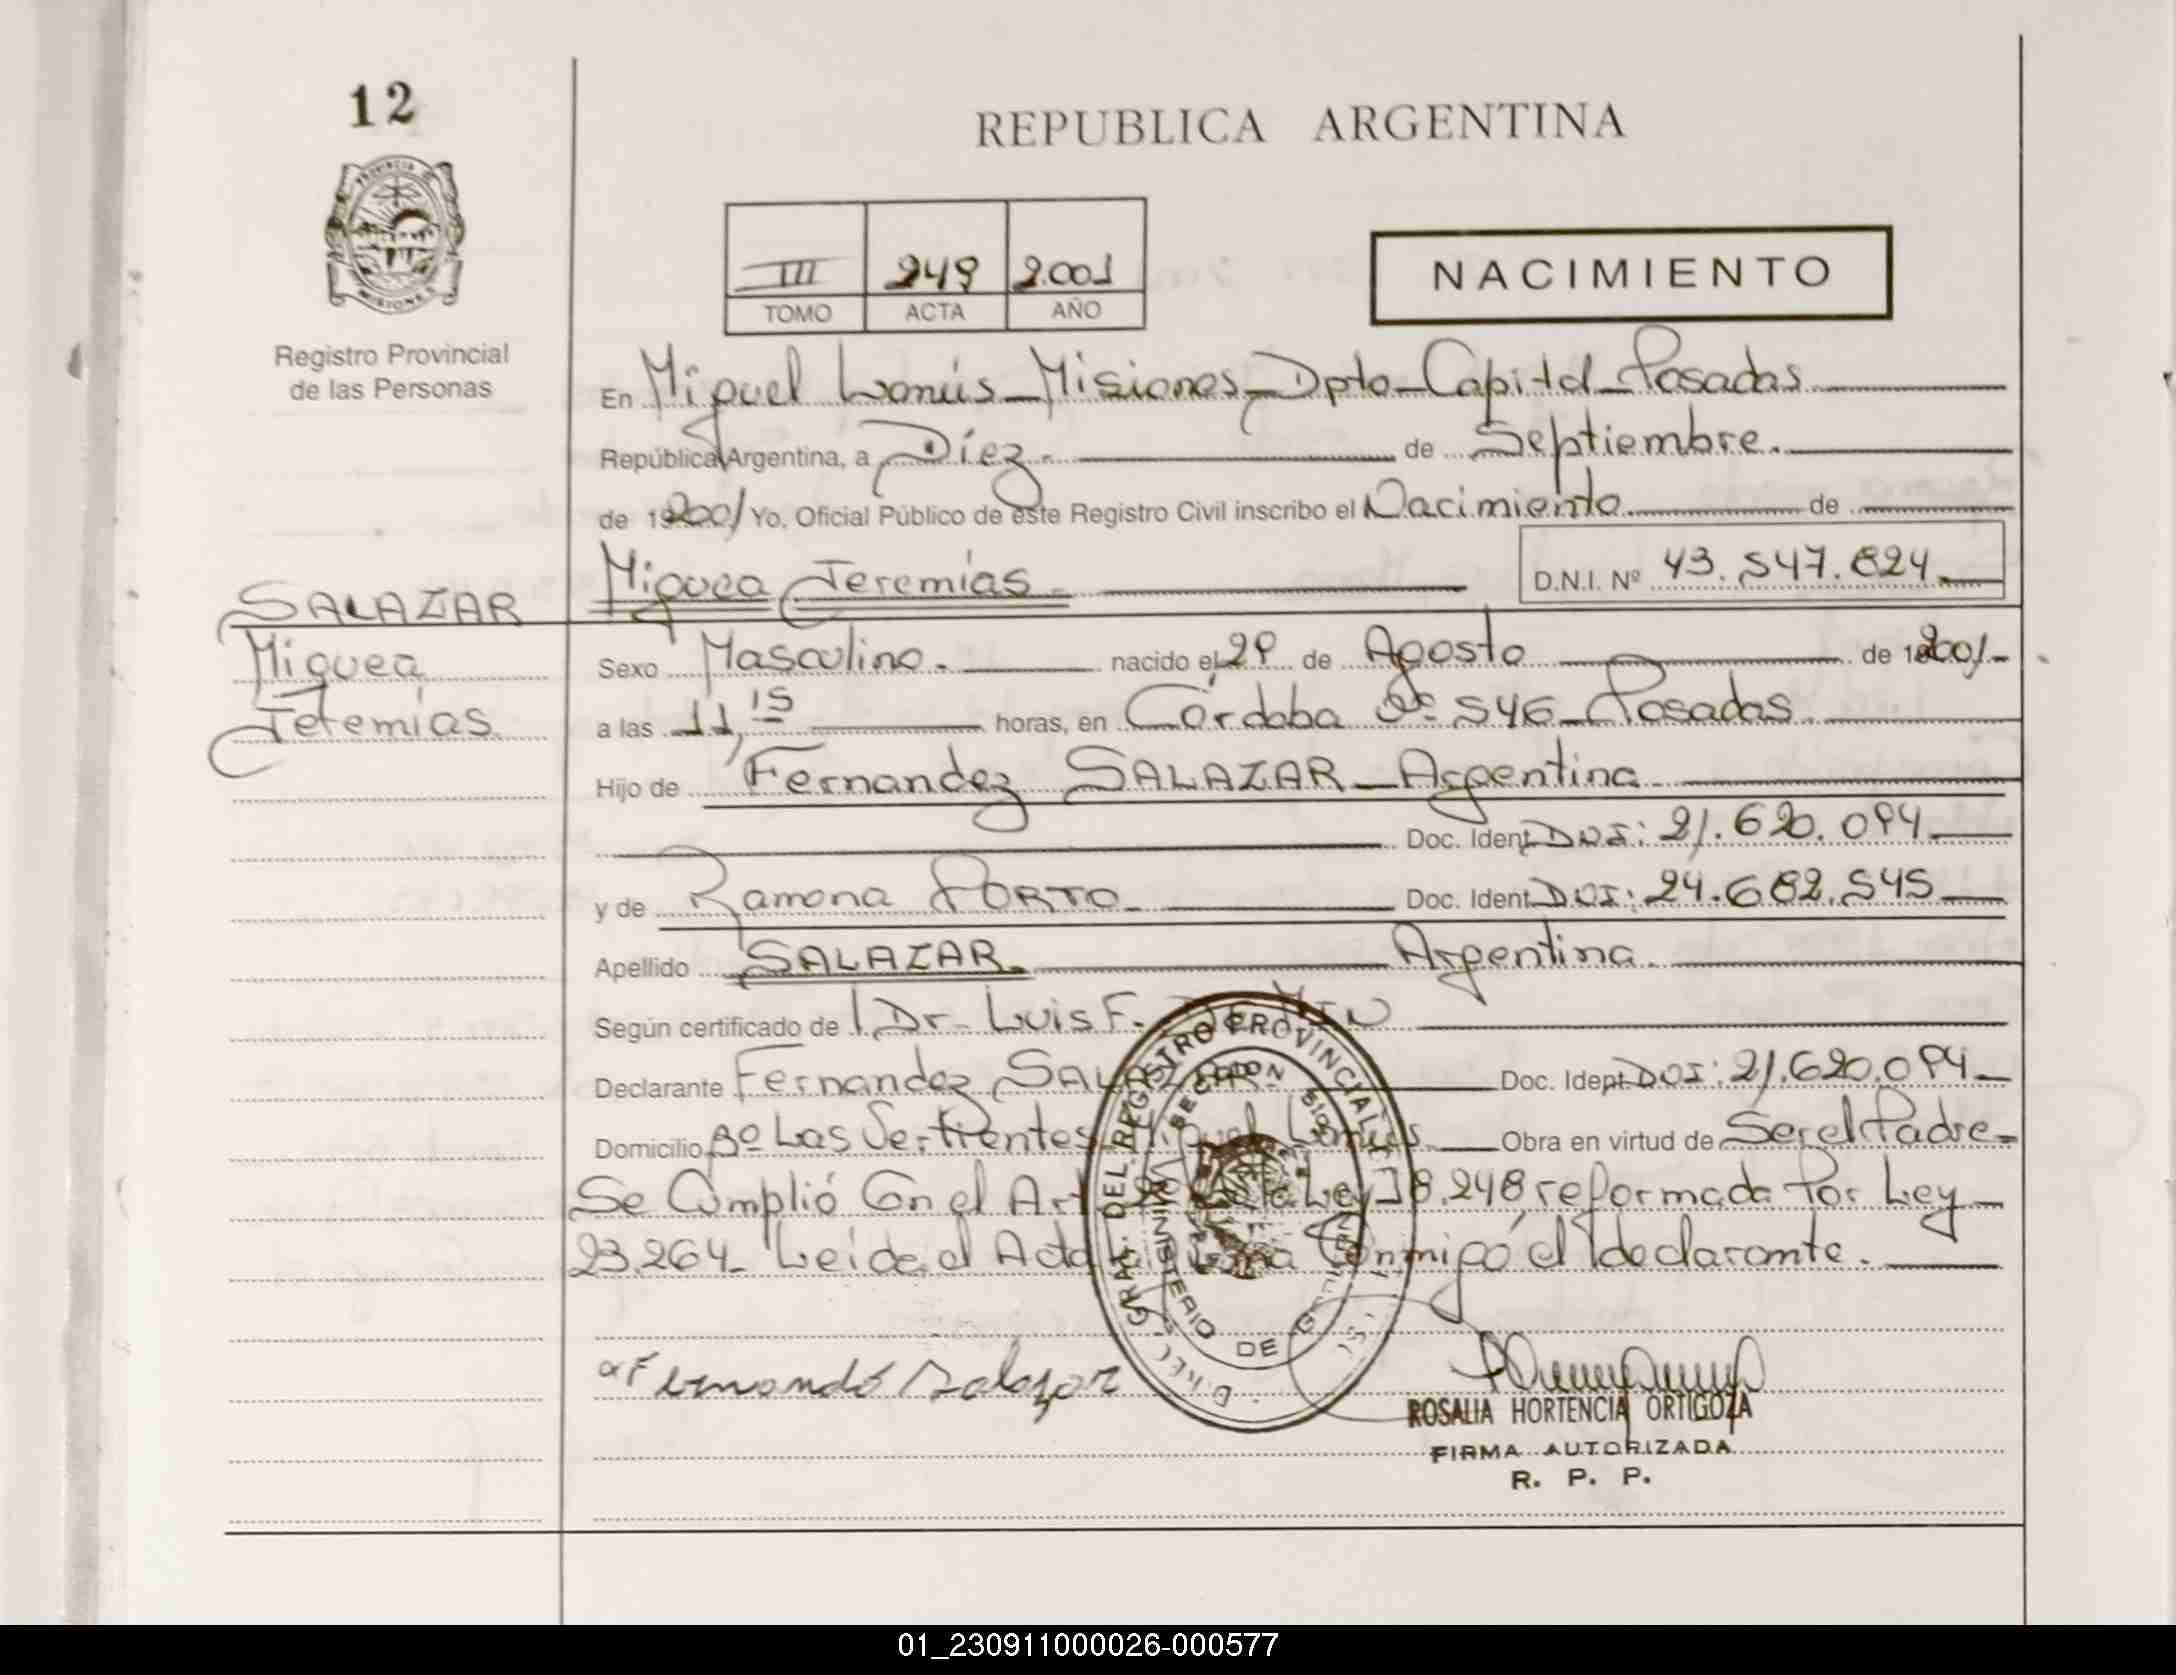 12
REPUBLICA ARGENTINA
PROVINCIA DE
MISIONES
III 249 2.001
TOMO ACTA AÑO
NACIMIENTO
Registro Provincial
de las Personas
En Miguel Lanús - Misiones - Dpto - Capital - Posadas
República Argentina, a Diez. de Septiembre.
de 19 2001 Yo, Oficial Público de este Registro Civil inscribo el Nacimiento de
Miquea Jeremías D.N.I. Nº 43.547.824
SALAZAR
Miquea
Jeremías
Sexo Masculino. nacido el 29 de Agosto de 2001-
a las 11,15 horas, en Córdoba Nº 546 - Posadas
Hijo de Fernandez SALAZAR - Argentina
Doc. Ident. DNI: 21.620.094
y de Ramona PORTO - Doc. Ident. DNI: 24.682.545
Apellido SALAZAR. Argentina.
Según certificado de Dr. Luis F.
Declarante Fernandez SALAZAR Doc. Ident. DNI: 21.620.094
Domicilio Bº Las Vertientes Miguel Lanús. Obra en virtud de Ser el Padre -
Se Cumplió Con el Art Ley 18.248 reformada Por Ley
23.264 - Leida el Acta firma Conmigo el declarante.
DIREC. GRAL. DEL REGISTRO PROVINCIAL
MINISTERIO DE
Fernando Salazar
ROSALIA HORTENCIA ORTIGOZA
FIRMA AUTORIZADA
R. P. P.
01_230911000026-000577